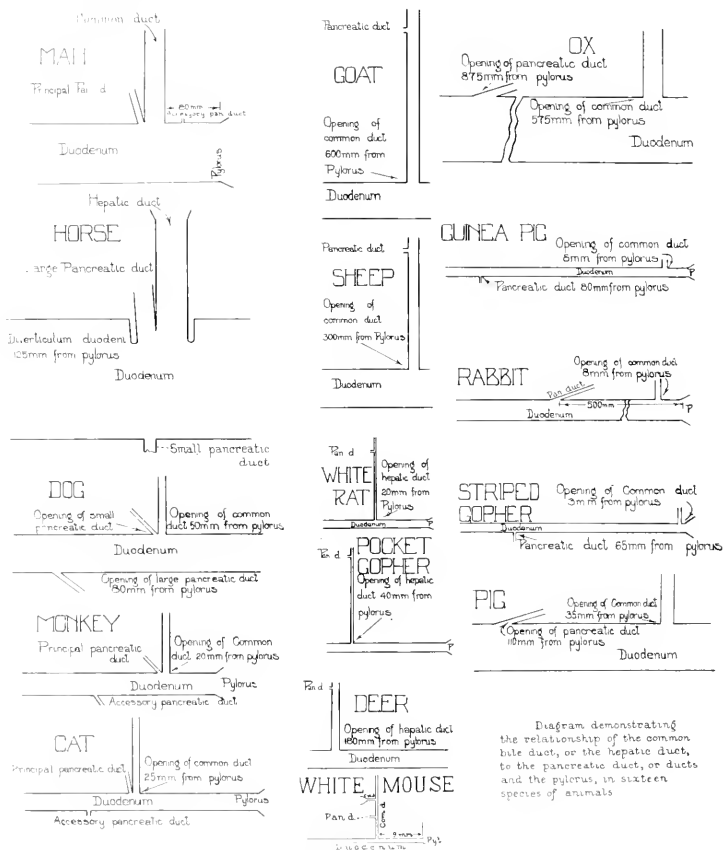 Common duct
MAN
Principal Pan d
80mm
Accessory pan duct
Duodenum
Pylorus
Hepatic duct
HORSE
Large Pancreatic duct
Diverticulum duodeni
125mm from pylorus
Duodenum
Small pancreatic
duct
DOG
Opening of small
pancreatic duct
Opening of common
duct 50mm from pylorus
Duodenum
Opening of large pancreatic duct
80mm from pylorus
MONKEY
Principal pancreatic
duct
Opening of Common
duct 20mm from pylorus
Duodenum
Pylorus
Accessory pancreatic duct
CAT
Principal pancreatic
duct
Opening of common duct
25mm from pylorus
Duodenum
Pylorus
Accessory pancreatic duct
Pancreatic duct
GOAT
Opening of
common duct
600mm from
Pylorus
Duodenum
Pancreatic duct
SHEEP
Opening of
common duct
300mm from Pylorus
Duodenum
Pan d
WHITE
RAT
Opening of
hepatic duct
20mm from
Pylorus
Duodenum
P
Pan d
POCKET
GOPHER
Opening of hepatic
duct 40mm from
pylorus
P
Pan d
DEER
Opening of hapatic duct
180mm from pylorus
Duodenum
WHITE MOUSE
Pan d
Com d
9mm
Pyl
Duodenum
OX
Opening of pancreatic duct
875mm from pylorus
Opening of common duct
575mm from pylorus
Duodenum
GUINEA PIG
Opening of common duct
8mm from pylorus
Duodenum
P
Pancreatic duct 80mm from pylorus
RABBIT
Opening of common duct
8mm from pylorus
Pan duct
500mm
P
Duodenum
STRIPED
GOPHER
Opening of Common duct
3mm from pylorus
Duodenum
Pancreatic duct 65mm from pylorus
PIG
Opening of Common duct
35mm from pylorus
Opening of pancreatic duct
110mm from pylorus
Duodenum
Diagram demonstrating
the relationship of the common
bile duct, or the hepatic duct,
to the pancreatic duct, or ducts
and the pylorus, in sixteen
species of animals